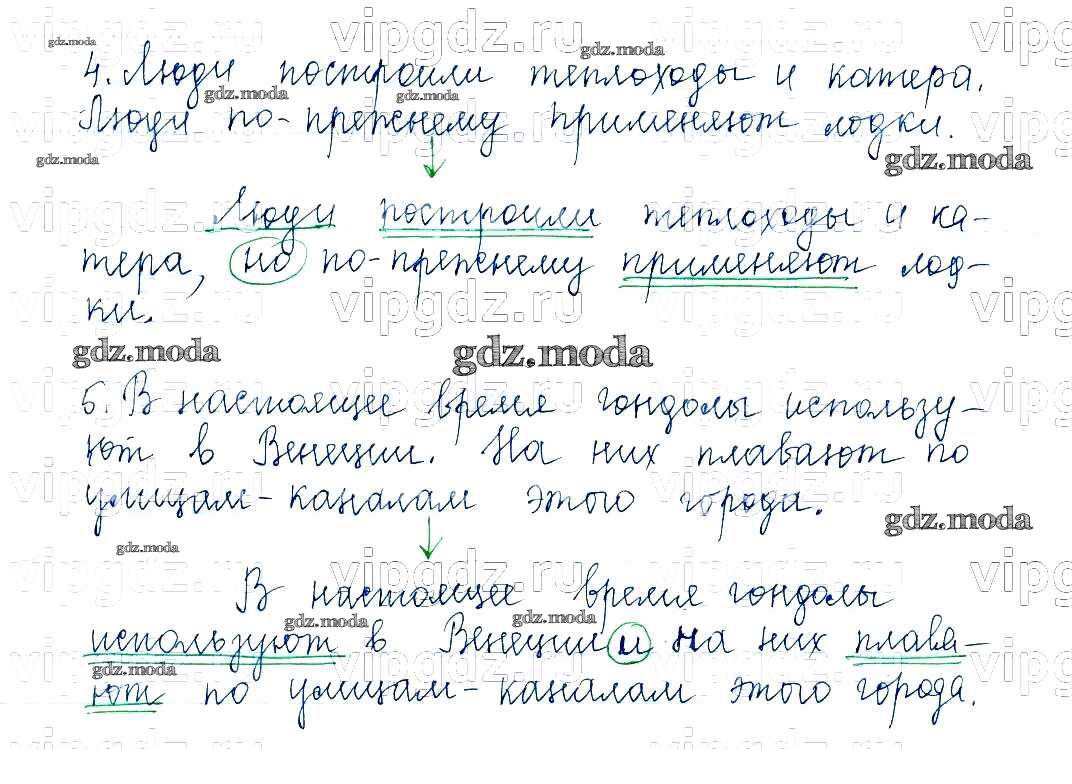 4. Люди построили теплоходы и катера.
Люди по-прежнему применяют лодки.
Люди построили теплоходы и ка-
тера, но по-прежнему применяют лод-
ки.
5. В настоящее время гондолы использу-
ют в Венеции. На них плавают по
улицам-каналам этого города.
В настоящее время гондолы
используют в Венеции и на них плава-
ют по улицам-каналам этого города.